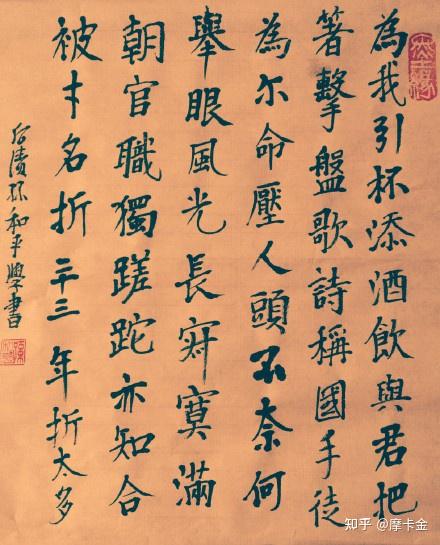 為我引杯添酒飲與君把
箸擊盤歌詩稱國手徒
為尔命壓人頭不奈何
舉眼風光長寂寞滿
朝官職獨蹉跎亦知合
被才名折二十三年折太多
孙和平學書
知乎 @摩卡金